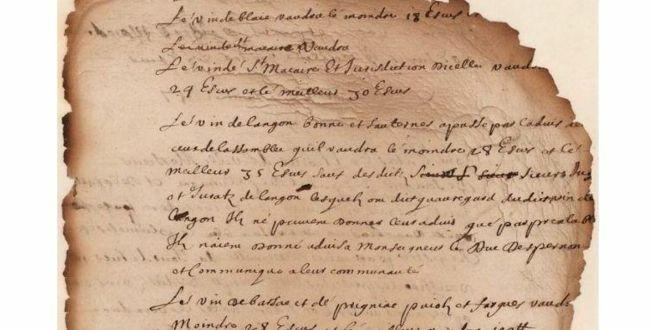 Le vin de Blaie vaudra le moindre 18 Escus
Le vin de St macaire vaudra
Le vin de St Macaire Et Jurisdiction Dicelle vaudra
24 Escus et le meilleur 30 Escus
Le vin de Langon Bonne et fauternes a passe pas Ladvis
de lassemblee quil vaudra le moindre 28 Escus et Le
meilleur 35 Escus sauf desdits sieurs
et Jurats de Langon lesquels ont dict quau regard du
Langon Ils ne peuvent donner leur advis que pas prealable
Ils naient Donne advis a Monseigneur le Duc Despernon
et Communique a leur communaute
Les vin de Bassac et de preignac et fargues vaudra
Moindre 28 Escus et le